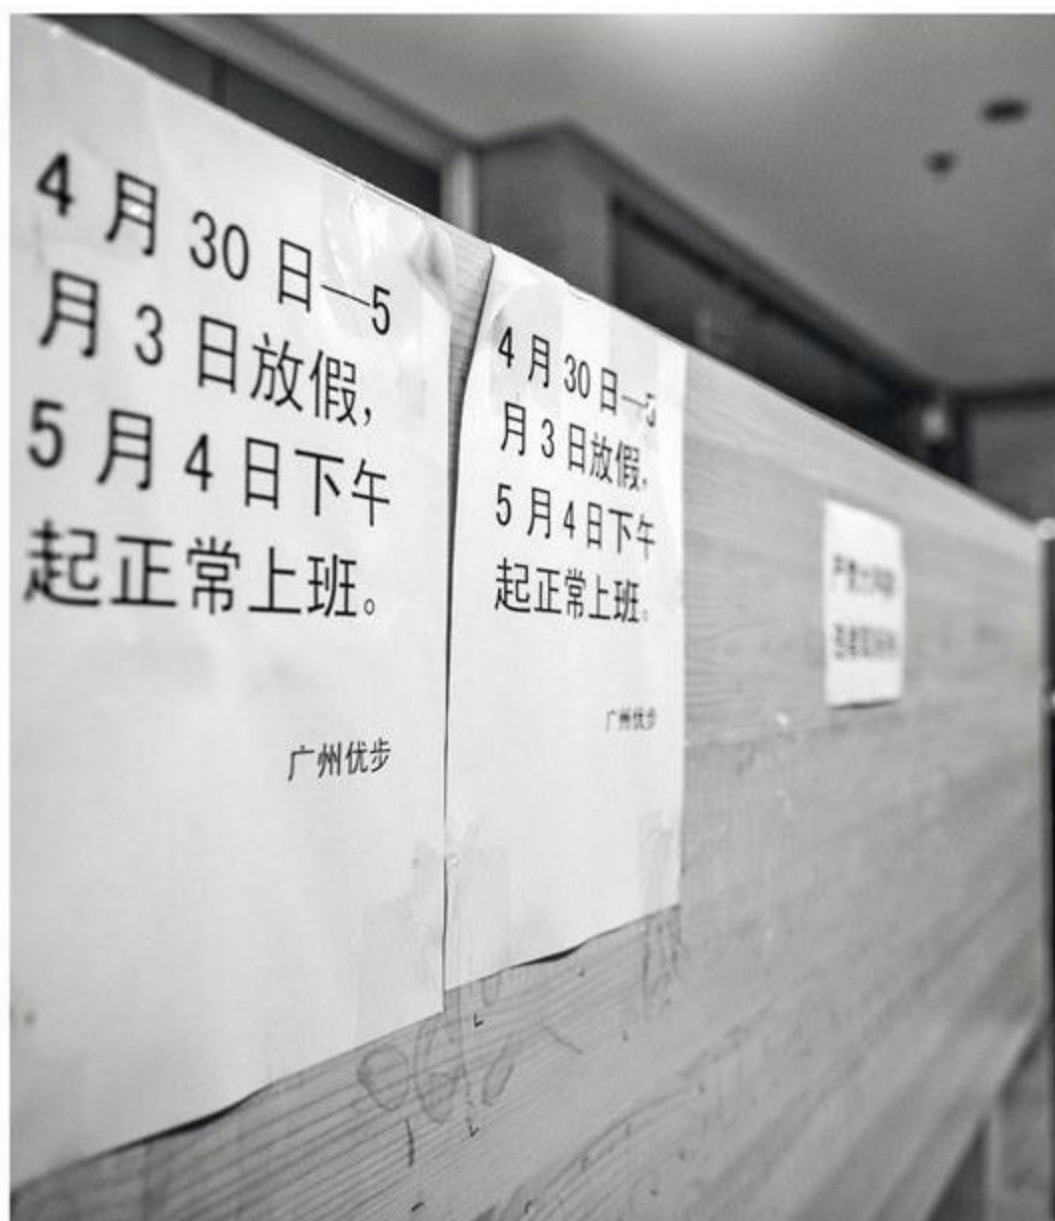 4 月 30 日—5
月 3 日放假,
5 月 4 日下午
起正常上班。
广州优步
4 月 30 日—5
月 3 日放假,
5 月 4 日下午
起正常上班。
广州优步